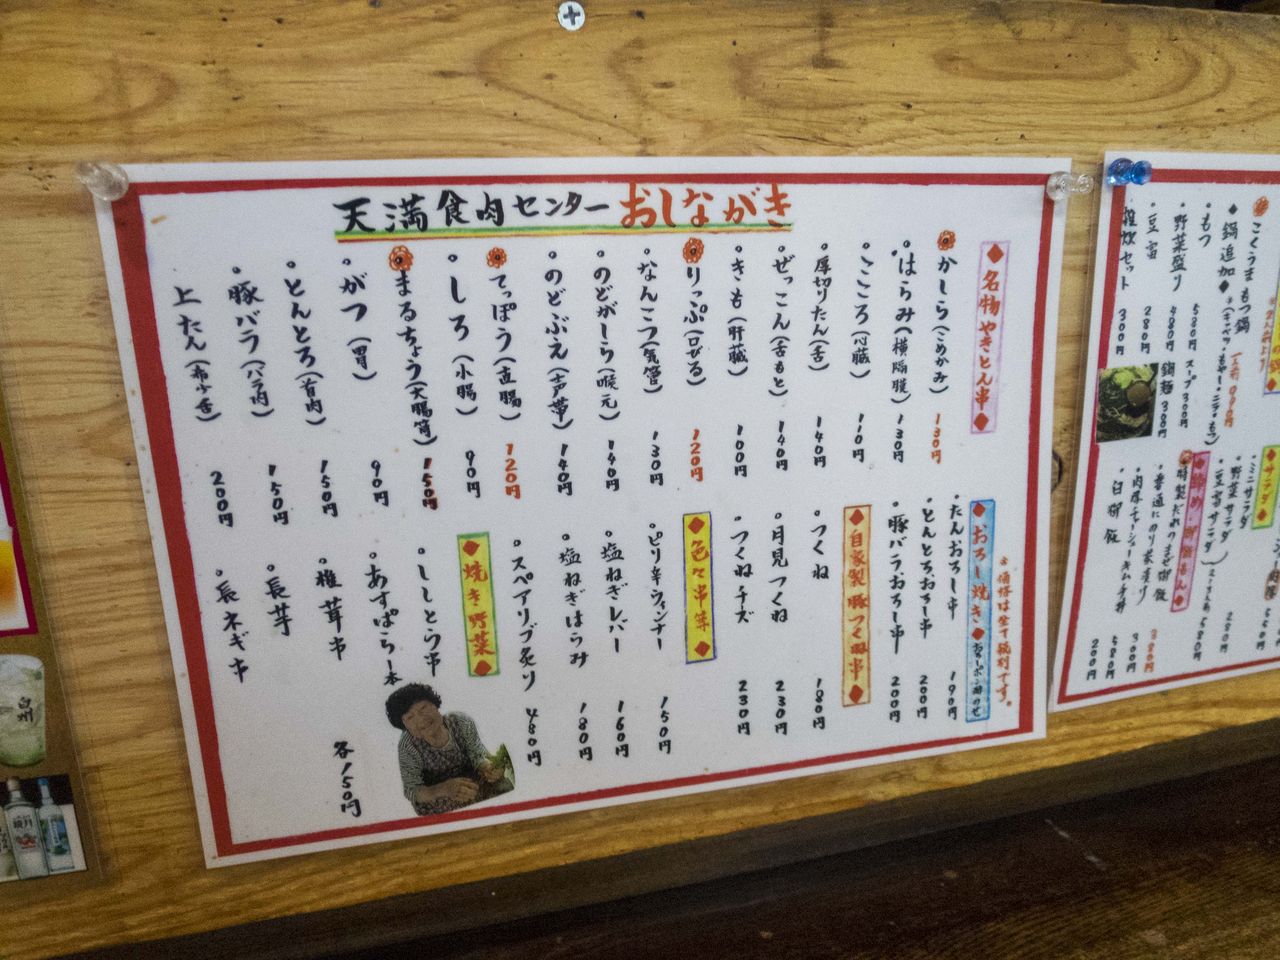 天満食肉センターおしながき
◆名物やきとん串◆
かしら(こめかみ) 130円
はらみ(横隔膜) 130円
こころ(心臓) 110円
厚切りたん(舌) 140円
ぜっこん(舌もと) 140円
きも(肝臓) 100円
りっぷ(口びる) 120円
なんこつ(気管) 130円
のどがしら(喉元) 140円
のどぶえ(声帯) 140円
てっぽう(直腸) 120円
しろ(小腸) 90円
まるちょう(大腸筒) 150円
がつ(胃) 90円
とんとろ(首肉) 150円
豚バラ(バラ肉) 150円
上たん(希少舌) 200円
※価格は全て税別です。
◆おろし焼き◆おろしポン酢のせ
たんおろし串 190円
とんとろおろし串 200円
豚バラおろし串 200円
◆自家製豚つくね串◆
つくね 180円
月見つくね 230円
つくねチーズ 230円
◆色々串等◆
ピリ辛ウィンナー 150円
塩ねぎレバー 160円
塩ねぎはらみ 180円
スペアリブ炙り 480円
◆焼き野菜◆
ししとう串
あすぱら一本
椎茸串
長芋
長ネギ串
各150円
こくうまもつ鍋
◆鍋追加◆
もつ 580円
野菜盛り 480円
豆腐 280円
雑炊セット 300円
スープ 300円
鍋麺 300円
◆サラダ◆
ミニサラダ
野菜サラダ 280円
豆富サラダ 580円
特製だれのまぜ御飯 380円
普通にのり茶漬け 300円
肉屋チャーシューキムチ丼 580円
白御飯 200円
白州